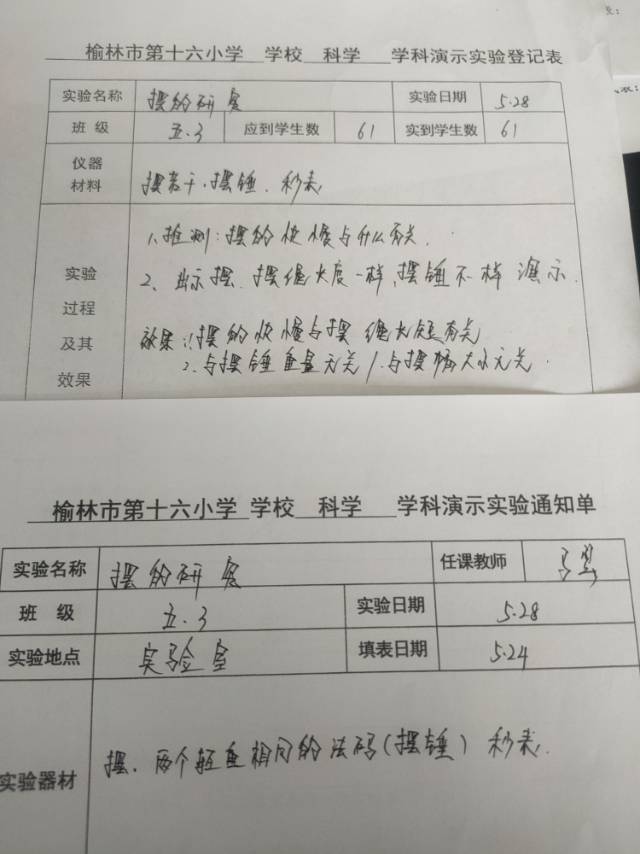 榆林市第十六小学 学校 科学 学科演示实验登记表
实验名称 摆的研究 实验日期 5.28
班 级 五.3 应到学生数 61 实到学生数 61
仪器
材料
摆若干.摆锤.秒表
实验
过程
及其
效果
1、推测:摆的快慢与什么有关.
2、出示摆.摆绳长度一样、摆锤不一样 演示.
效果:1.摆的快慢与摆绳长短有关
2.与摆锤重量无关/.与摆幅大小无关
榆林市第十六小学 学校 科学 学科演示实验通知单
实验名称 摆的研究 任课教师
班 级 五.3 实验日期 5.28
实验地点 实验室 填表日期 5.24
实验器材 摆.两个轻重相同的法码(摆锤) 秒表.